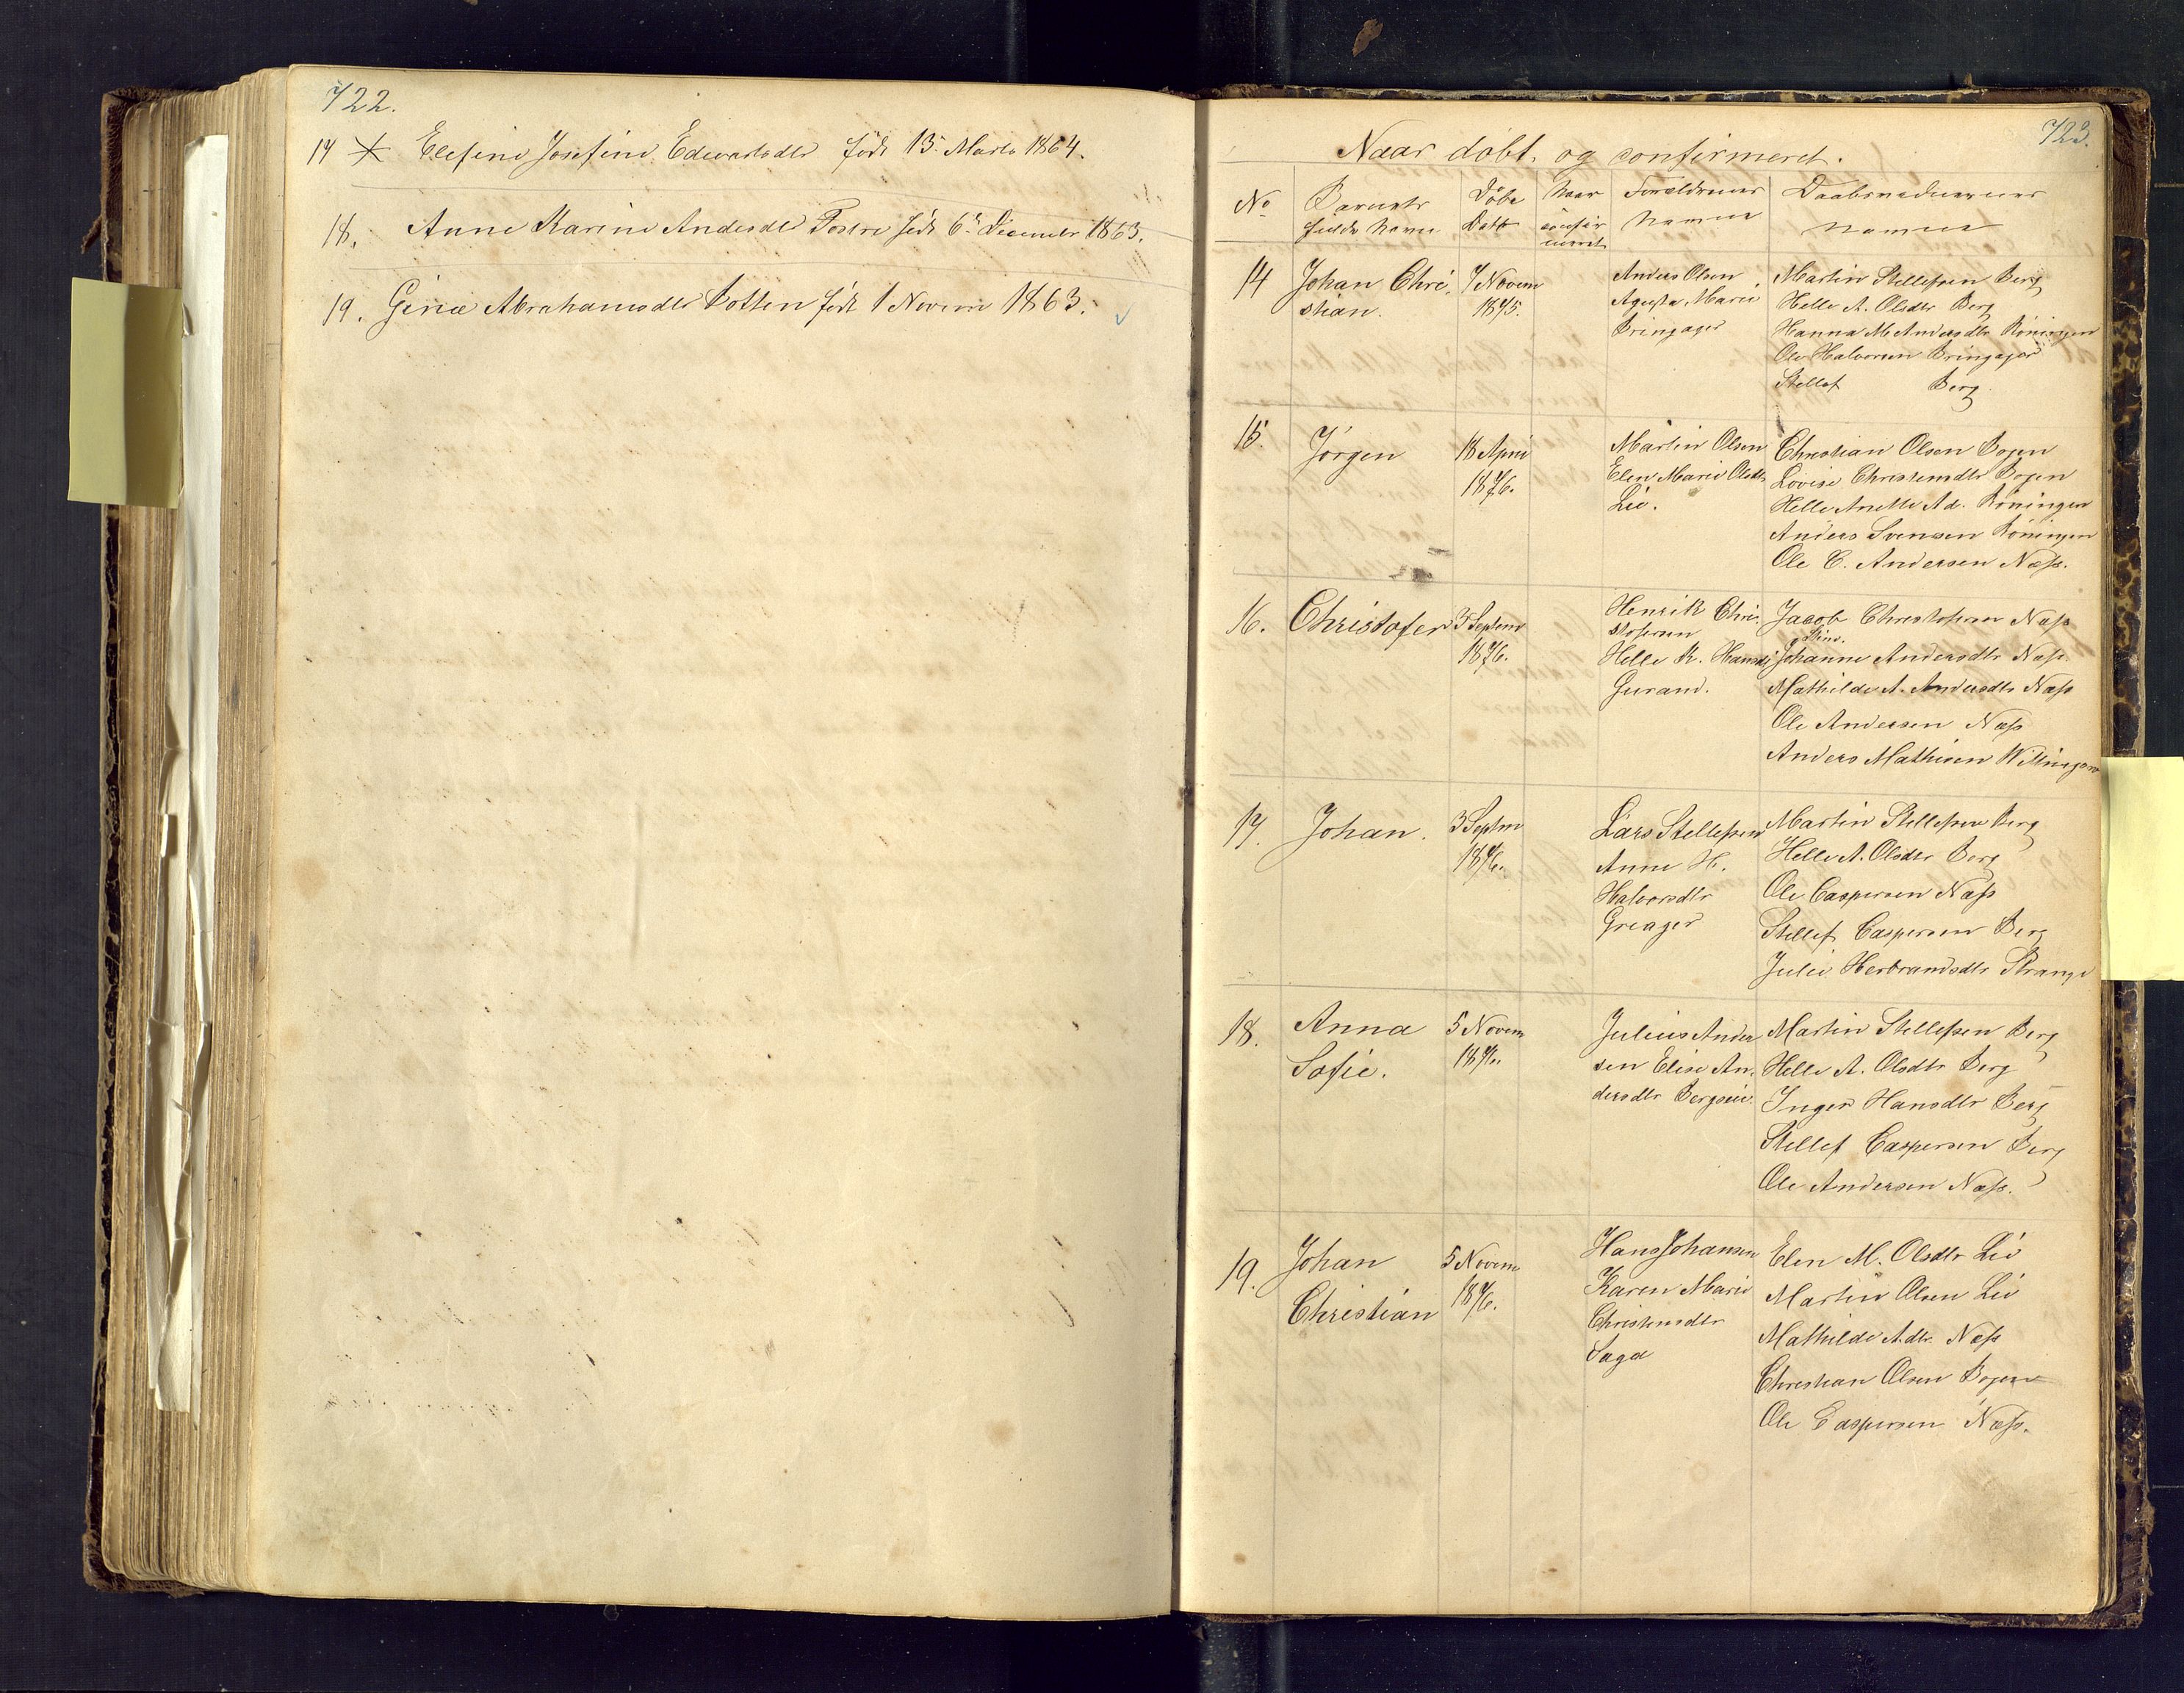 722.
17 Elefine Josefine Edevartsdtr født 13 Marts 1864.
18. Anne Karine Andersdtr Fostre født 6 December 1863.
19. Gina Abrahamsdtr Botten født 1 Novem 1863.
723.
Naar døbt, og confirmeret.
No
Barnets fulde Navn
Døbe Dato
Naar confirmeret
Forældrenes Navne
Daabsvidnernes Navne
14 Johan Christian. 7 Novem 1875.
Anders Olsen
Agusta Marie
Bringager
Martin Stellefsen Berg
Helle A. Olsdtr Berg
Hanna M Andersdtr Røningen
Ole Halvorsen Bringager
Stellef Berg.
15. Jørgen 18 April 1876.
Martin Olsen
Elen Marie Olsdtr
Lie.
Christian Olsen Bogen
Lovise Christensdtr Bogen
Helle Anette Ad. Røningen
Anders Svensen Røningen
Ole C. Andersen Næss.
16. Christofer 3 Septem 1876.
Henrik Christofersen
Helle K. Hansd
Gurand.
Jacob Christofersen Næss
Stine.
Johanne Andersdtr Næss.
Mathilde A. Andersdtr Næss
Ole Andersen Næss
Anders Mathisen
17. Johan. 3 Septem 1876.
Lars Stellefsen
Anne H.
Halvorsdtr
Greager
Martin Stellefsen Berg
Helle A. Olsdtr Berg
Ole Caspersen Næss
Stellef Caspersen Berg
Julie Herbrandsdtr Strange
18. Anna Sofie. 5 Novem 1876.
Julius Andersen
Elise Andersdtr
Bergseie.
Martin Stellefsen Berg
Helle A. Olsdtr Berg
Inger Hansdtr Berg
Stellef Caspersen Berg
Ole Andersen Næss.
19. Johan Christian 5 Novem 1876.
Hans Johansen
Karen Marie
Christensdtr
Saga
Elen M. Olsdtr Lie
Martin Olsen Lie
Mathilde A.dtr. Næss
Christian Olsen Bogen
Ole Caspersen Næss.